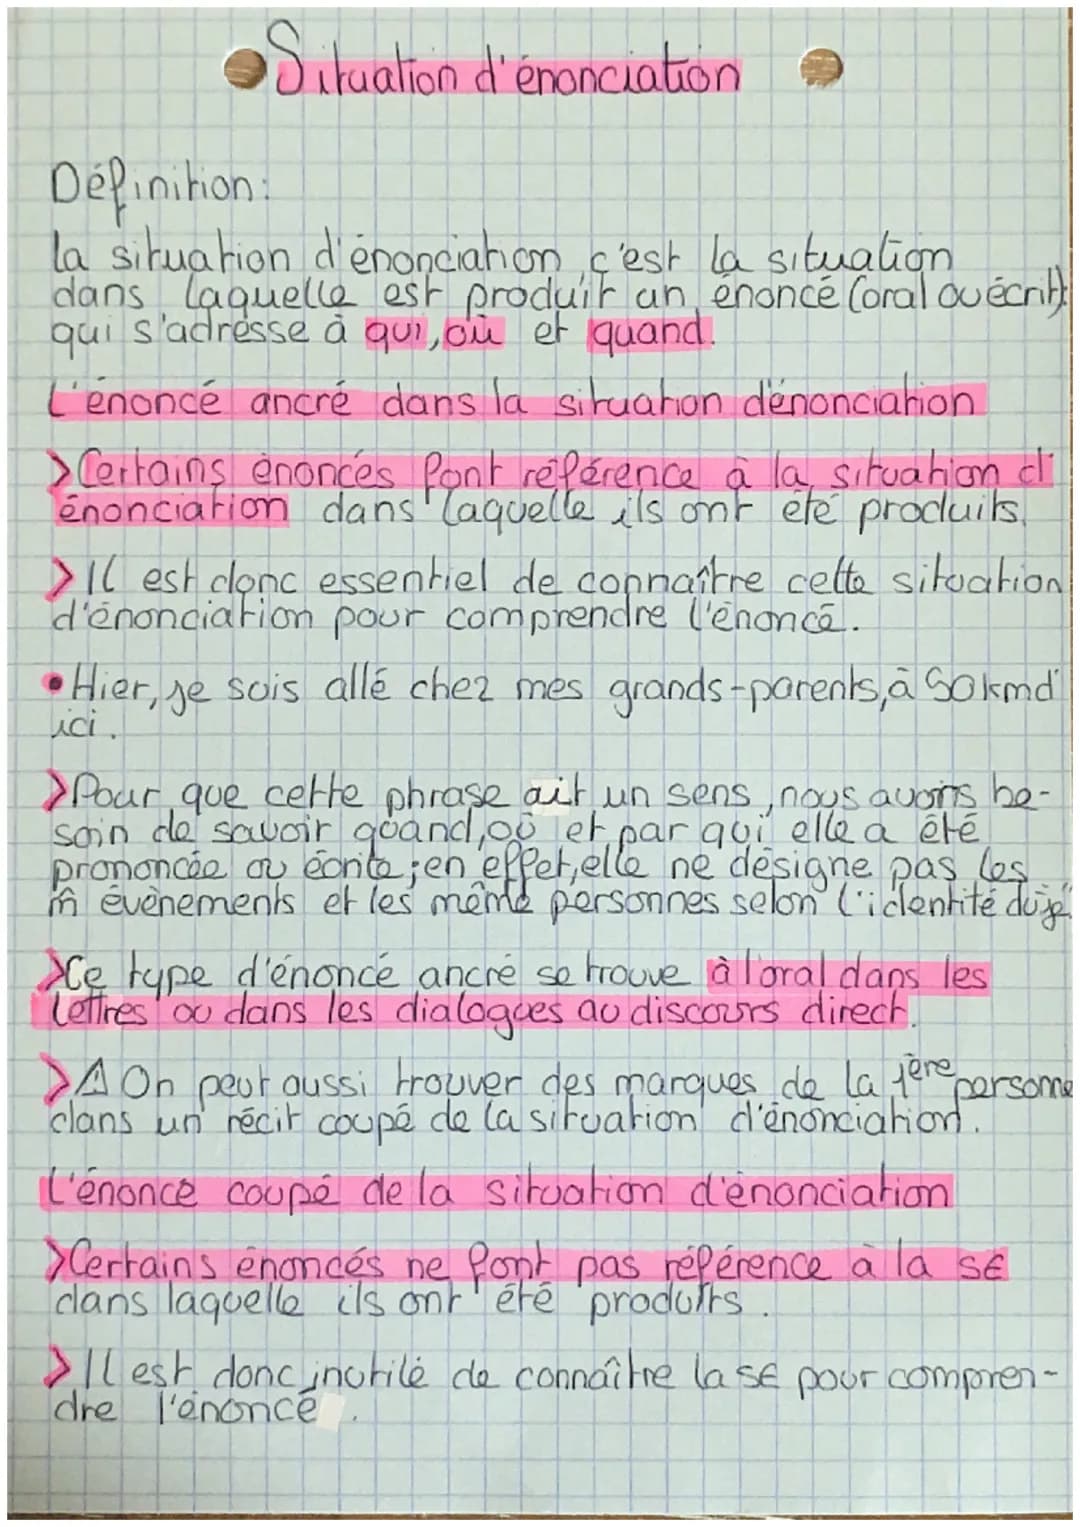 Situation d'énonciation
Définition:
La situation d'énonciation, c'est la situation
dans laquelle est produit un énoncé (oral ou écrit):
qui s'adresse à qui, où et quand.
L'énoncé ancré dans la situation d'énonciation
>Certains énoncés font référence à la situation d'
énonciation dans laquelle ils ont été produits.
>Il est donc essentiel de connaître cette situation
d'énonciation pour comprendre l'énoncé.
•Hier, je suis allé chez mes grands-parents, à 50kmd'
ici.
>Pour que cette phrase ait un sens, nous avons be-
soin de savoir quand, où et par qui elle a été
prononcée ou écrite; en effet, elle ne désigne pas les
m̂ évènements et les même personnes selon l'identité du "je"
>Ce type d'énoncé ancré se trouve à l'oral dans les
lettres ou dans les dialogues au discours direct.
>⚠ On peut aussi trouver des marques de la 1ère personne
dans un récit coupé de la situation d'énonciation.
L'énoncé coupé de la situation d'énonciation
>Certains énoncés ne font pas référence à la SE
dans laquelle ils ont été produits.
>Il est donc inutile de connaître la SE pour compren-
dre l'énoncé.